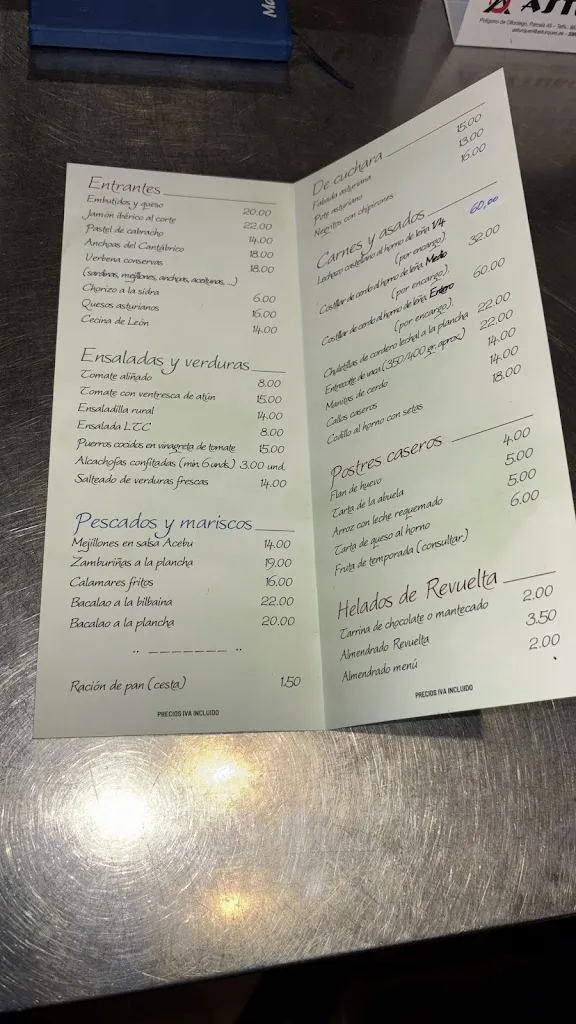 Mo
Polígono de Olloniego, Parcela
Entrantes
Embutidos y queso 20.00
Jamón ibérico al corte 22.00
Pastel de cabracho 14.00
Anchoas del Cantábrico 18.00
Verbena conservas 18.00
(sardinas, mejillones, anchoas, aceitunas...)
Chorizo a la sidra 6.00
Quesos asturianos 16.00
Cecina de León 14.00
Ensaladas y verduras
Tomate aliñado 8.00
Tomate con ventresca de atún 15.00
Ensaladilla rural 14.00
Ensalada LTC 8.00
Puerros cocidos en vinagreta de tomate 15.00
Alcachofas confitadas (min. 6 unds.) 3.00 und.
Salteado de verduras frescas 14.00
Pescados y mariscos
Mejillones en salsa Acebu 14.00
Zamburiñas a la plancha 19.00
Calamares fritos 16.00
Bacalao a la bilbaina 22.00
Bacalao a la plancha 20.00
Ración de pan (cesta) 1.50
PRECIOS IVA INCLUIDO
De cuchara
Fabada asturiana 15.00
Pote asturiano 13.00
Negritos con chipirones 16.00
Carnes y asados
Lechazo castellano al horno de leña 1/4 60,00
(por encargo).
Costillar de cerdo al horno de leña Medio 32.00
(por encargo).
Costillar de cerdo al horno de leña Entero 60.00
(por encargo).
Chuletillas de cordero lechal a la plancha 22.00
Entrecotte de vaca (350/400 gr. aprox.) 22.00
Manitas de cerdo 14.00
Callos caseros 14.00
Codillo al horno con setas 18.00
Postres caseros
Flan de huevo 4.00
Tarta de la abuela 5.00
Arroz con leche requemado 5.00
Tarta de queso al horno 6.00
Fruta de temporada (consultar)
Helados de Revuelta
Tarrina de chocolate o mantecado 2.00
Almendrado Revuelta 3.50
Almendrado menú 2.00
PRECIOS IVA INCLUIDO